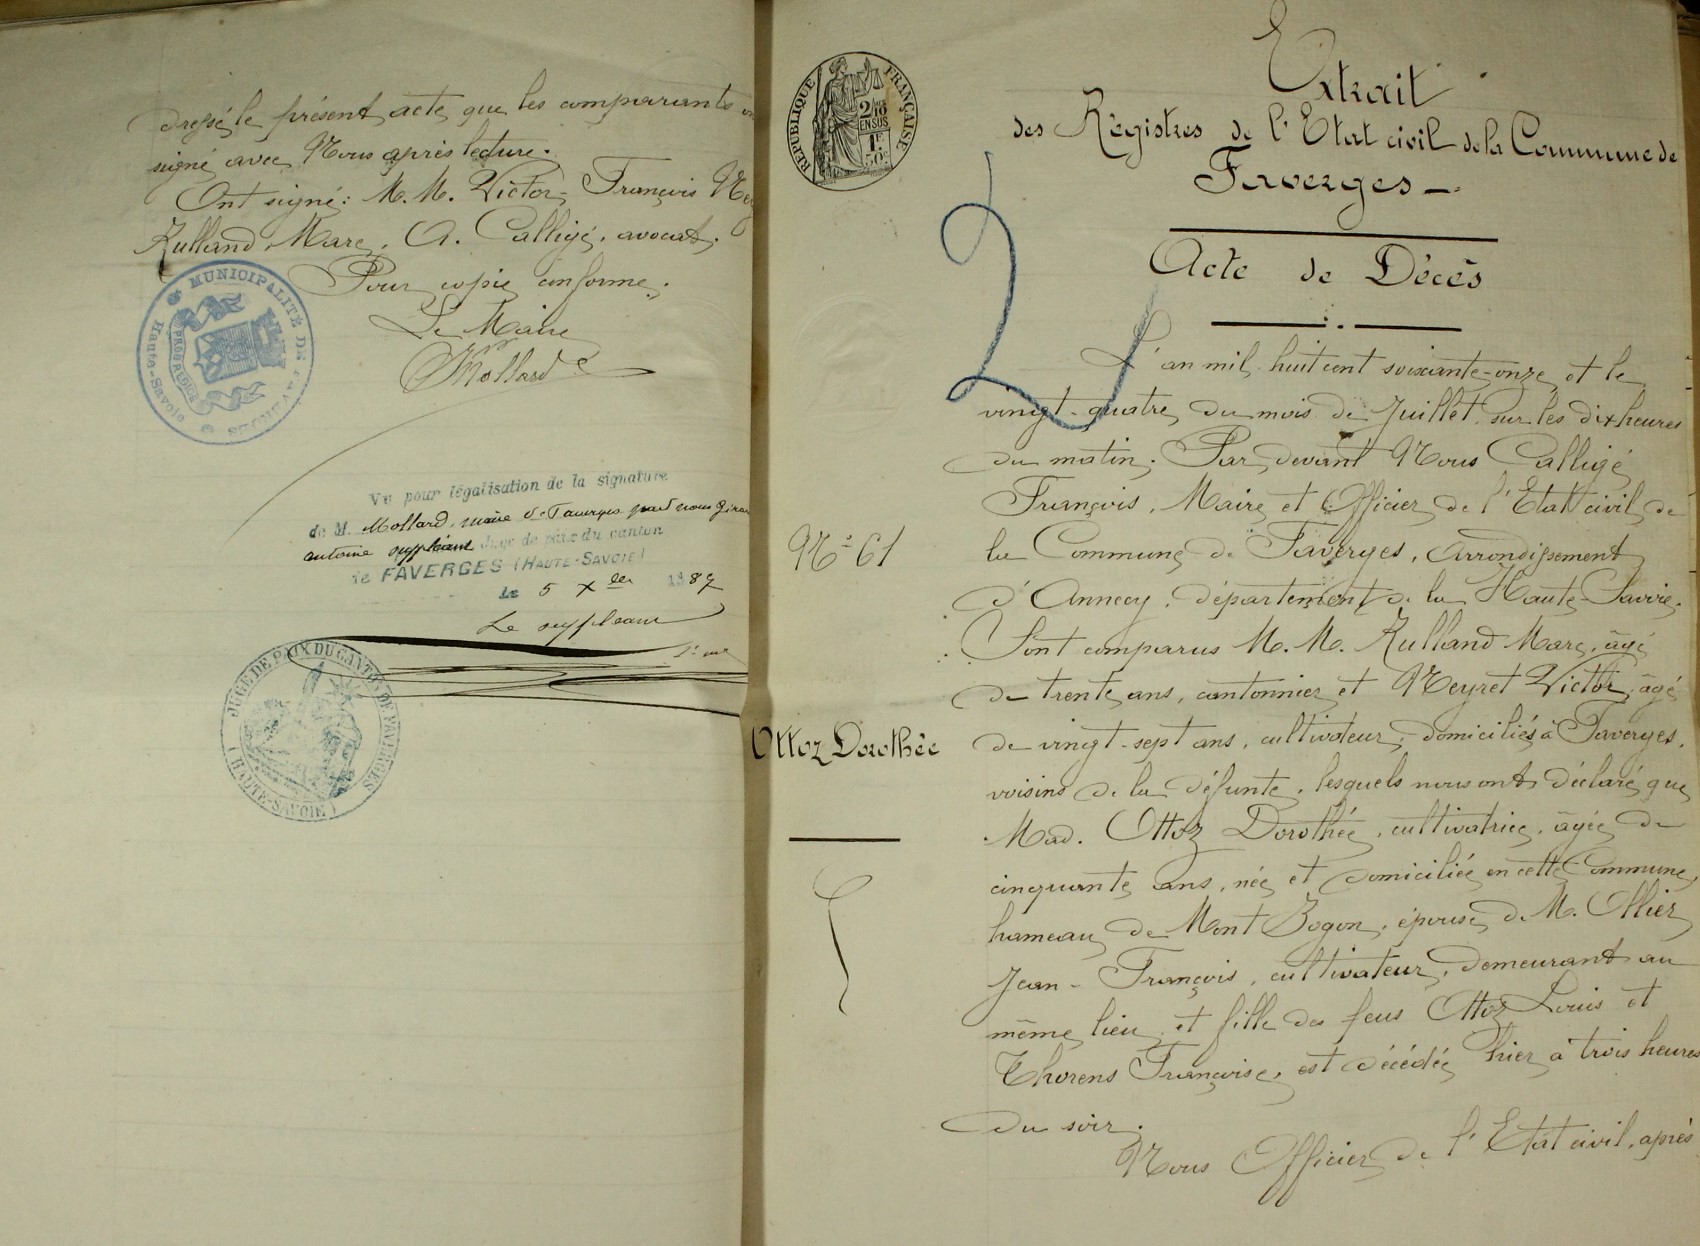 dressé le présent acte que les comparants
signé avec Nous après lecture.
Ont signé: M.M. Victor François
Rulland Marc. A. Calligé, avocat.
Pour copie conforme.
Le Maire
Mollard
MUNICIPALITÉ DE
Haute-Savoie
Vu pour légalisation de la signature
de M. Mollard, maire de Faverges par nous
antoine suppléant Juge de paix du canton
de FAVERGES (HAUTE-SAVOIE)
Le 5 Xbre 188
Le suppléant
JUGE DE PAIX DU CANTON DE FAVERGES
(HAUTE-SAVOIE)
RÉPUBLIQUE FRANÇAISE
2/10
EN SUS
1F
50c
Extrait
des Régistres de l'Etat civil de la Commune de
Faverges
Acte de Décès
2
L'an mil huit cent soixante-onze et le
vingt-quatre du mois de Juillet sur les dix heures
du matin. Par devant Nous Calligé
François, Maire et Officier de l'Etat civil de
la Commune de Faverges, arrondissement
d'Annecy, département de la Haute-Savoie.
Sont comparus M.M. Rulland Marc, âgé
de trente ans, cantonnier et Neyret Victor, âgé
de vingt-sept ans, cultivateur, domiciliés à Faverges,
voisins de la défunte, lesquels nous ont déclaré que
Mad. Ottoz Dorothée, cultivatrice, âgée de
cinquante ans, née et domiciliée en cette Commune,
hameau de Mont Bogon, épouse de M. Ollier
Jean-François, cultivateur, demeurant au
même lieu et fille des feus Ottoz Louis et
Thorens Françoise, est décédée hier à trois heures
du soir.
Nous Officier de l'Etat civil, après
N° 61
Ottoz Dorothée